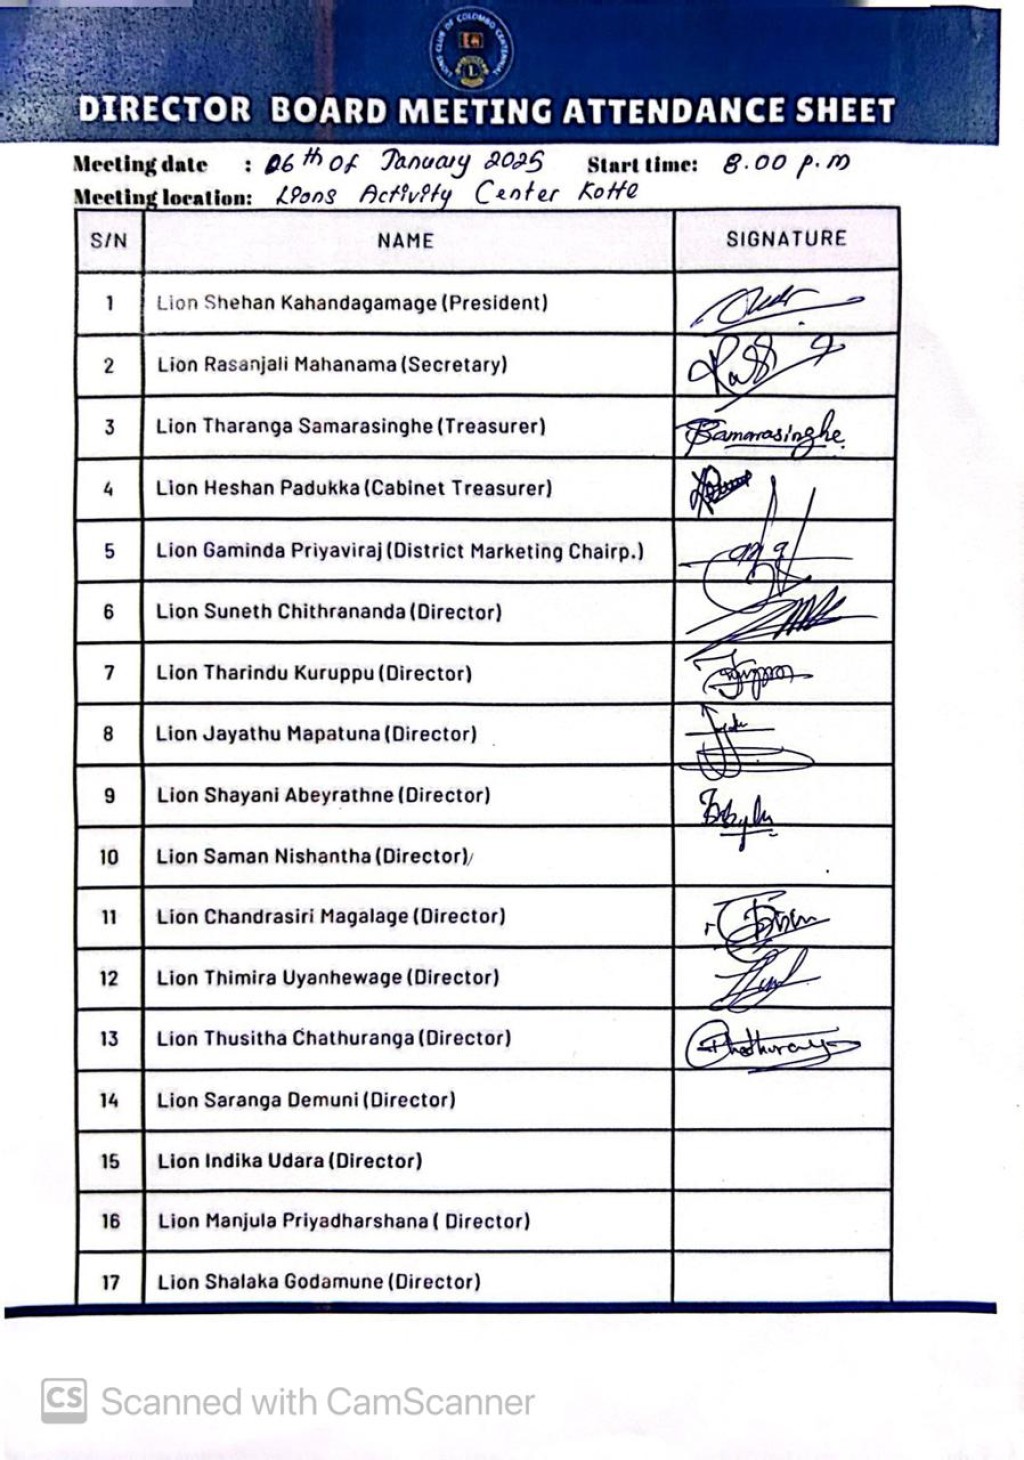 LIONS CLUB OF COLOMBO CENTENNIAL
L
DIRECTOR BOARD MEETING ATTENDANCE SHEET
Meeting date : 06th of January 2025 Start time: 8.00 p.m
Meeting location: Lions Activity Center Kotte
S/N NAME SIGNATURE
1 Lion Shehan Kahandagamage (President)
2 Lion Rasanjali Mahanama (Secretary)
3 Lion Tharanga Samarasinghe (Treasurer) Samarasinghe
4 Lion Heshan Padukka (Cabinet Treasurer)
5 Lion Gaminda Priyaviraj (District Marketing Chairp.)
6 Lion Suneth Chithrananda (Director)
7 Lion Tharindu Kuruppu (Director)
8 Lion Jayathu Mapatuna (Director)
9 Lion Shayani Abeyrathne (Director)
10 Lion Saman Nishantha (Director)
11 Lion Chandrasiri Magalage (Director)
12 Lion Thimira Uyanhewage (Director)
13 Lion Thusitha Chathuranga (Director)
14 Lion Saranga Demuni (Director)
15 Lion Indika Udara (Director)
16 Lion Manjula Priyadharshana ( Director)
17 Lion Shalaka Godamune (Director)
CS Scanned with CamScanner